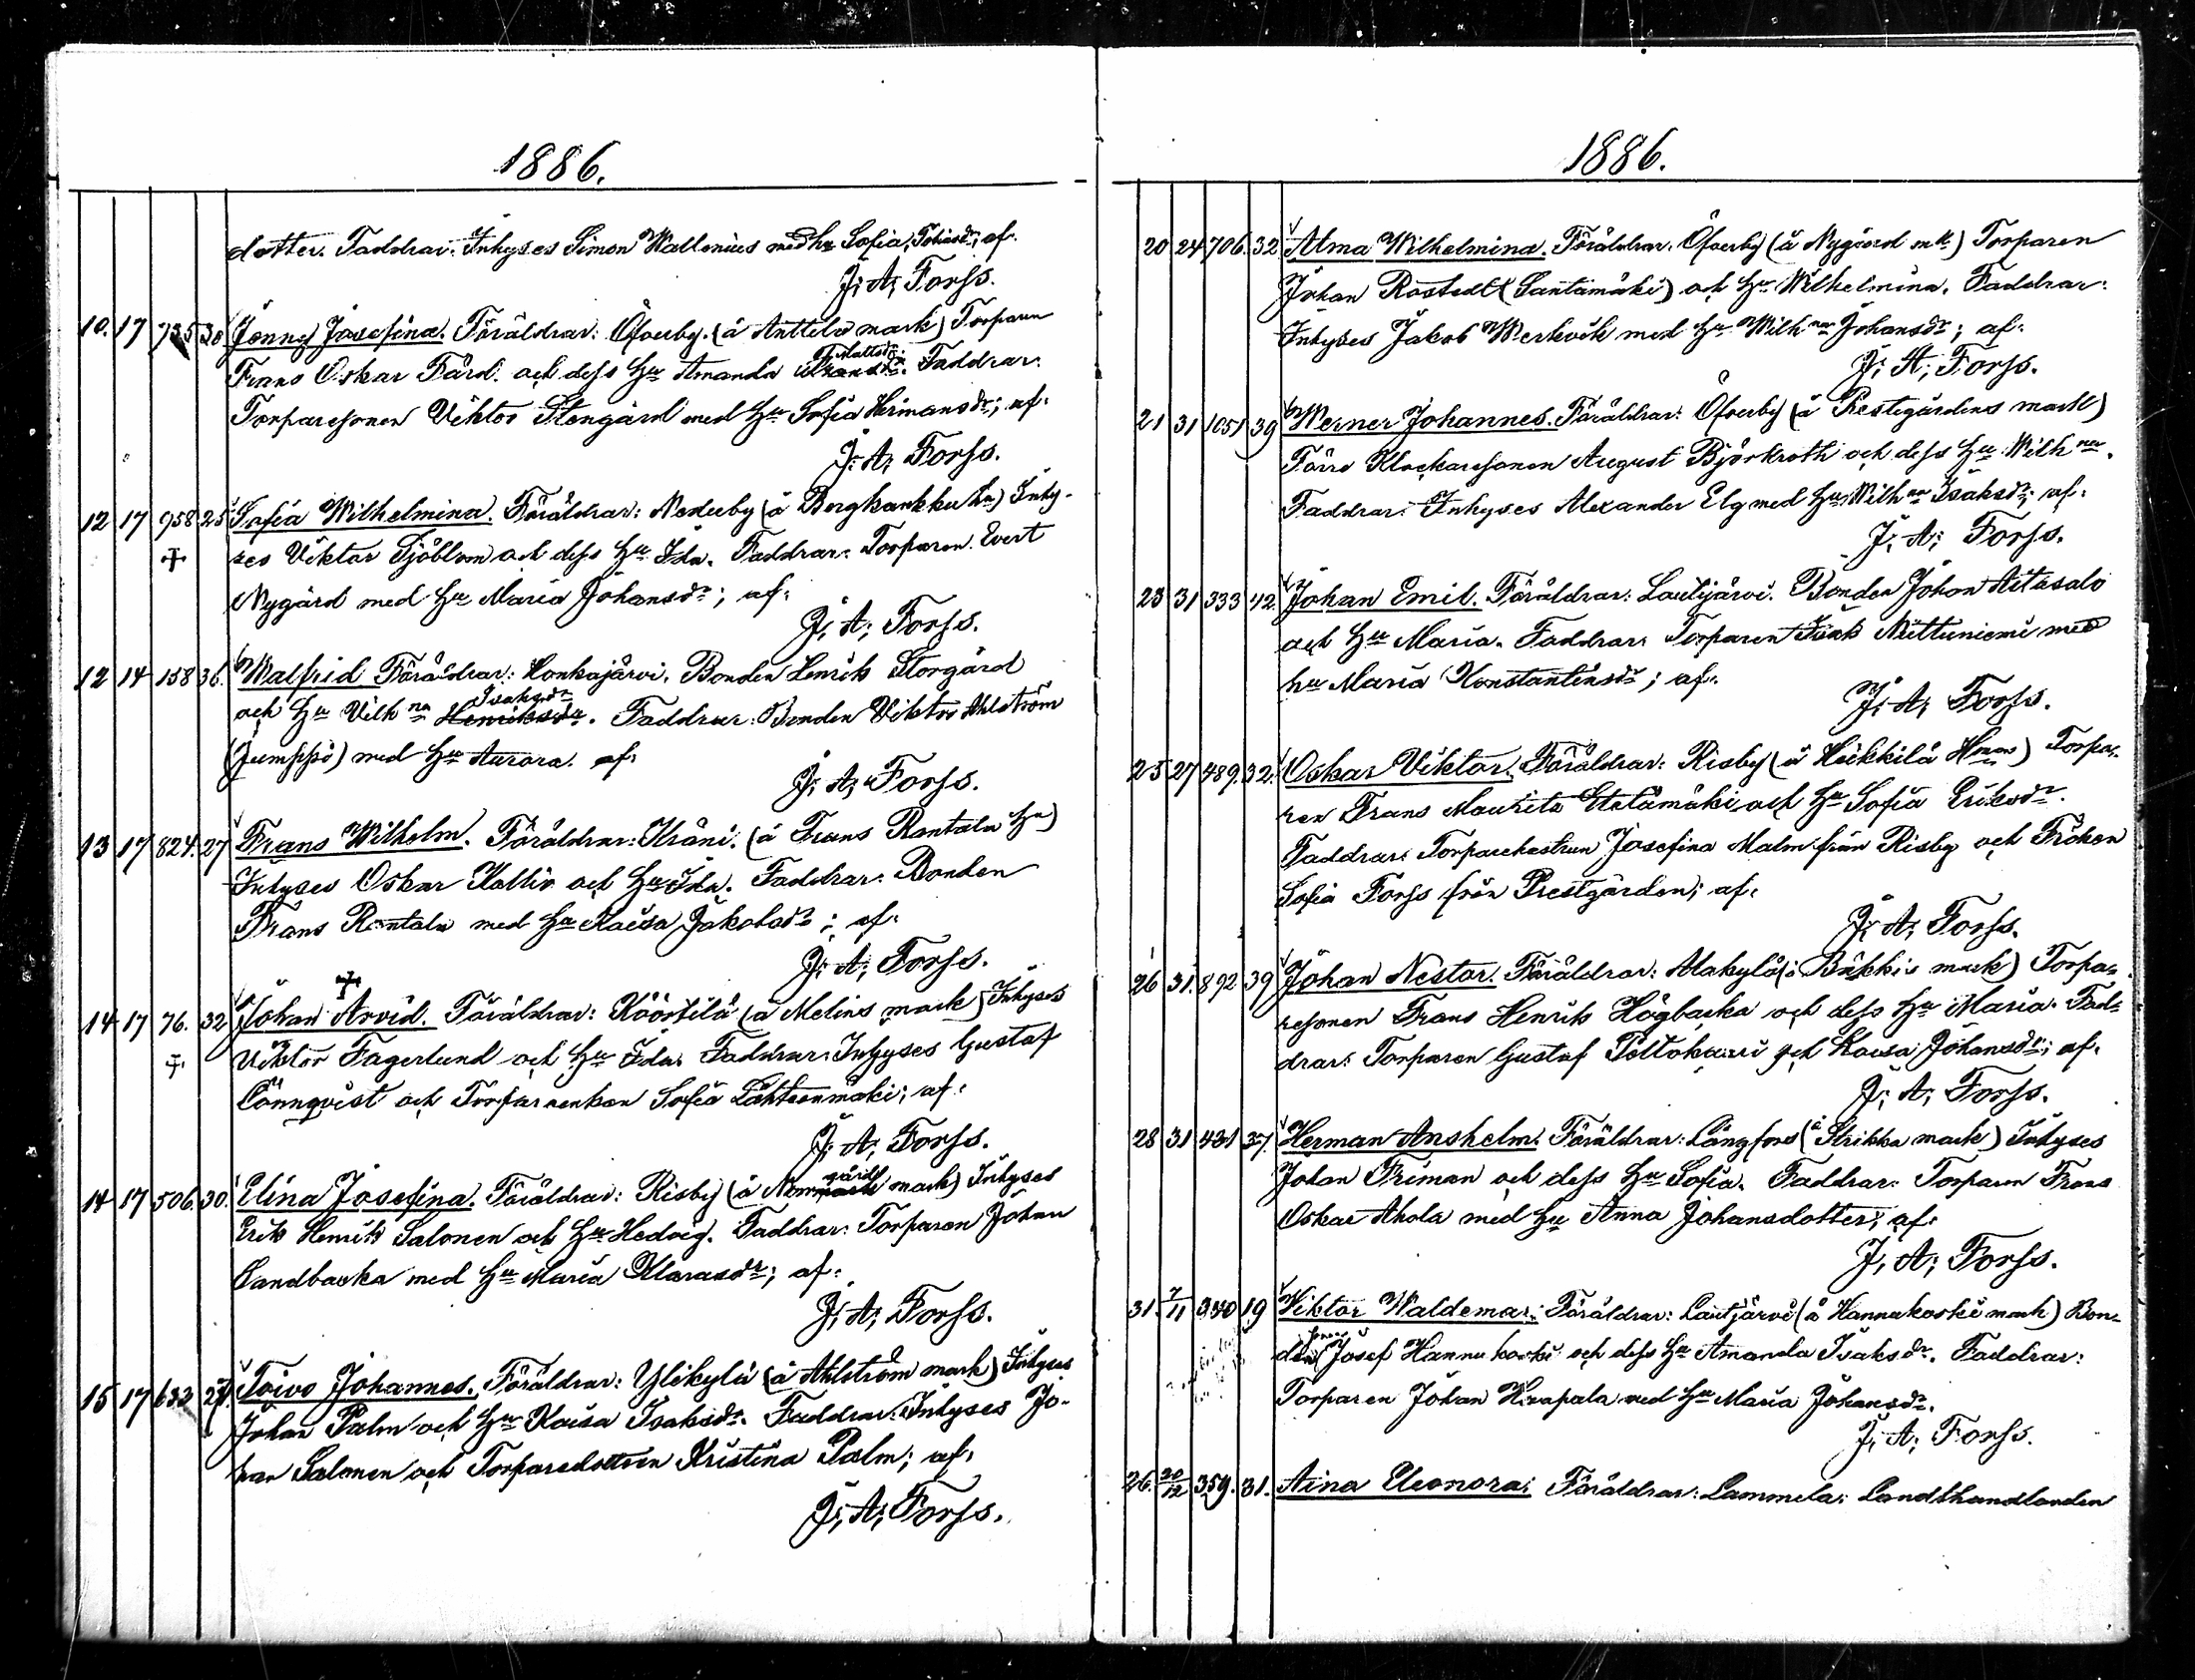 1886.
dotter. Faddrar: Inhyses Simon Wallenius med hu Sofia, Tobiasdr, af.
J. A. Forss.
10. 17 735 30 Jenny Josefina. Föräldrar: Öfverby. (å Anttila mark) Torparen
Frans Oskar Färd. och dess Hu Amanda Mattsdr. Faddrar:
Torparesonen Viktor Stengård med Hu Sofia Hermansdr; af.
J. A. Forss.
12 17 958 25 Sofia Wilhelmina. Föräldrar: Nederby (å Bergkankku hn) Inhy-
ses Viktor Sjöblom och dess Hu Ida. Faddrar: Torparen Evert
Nygård med Hu Maria Johansdr; af.
J. A. Forss.
12 14 158 36. Walfrid Föräldrar: Honkajärvi. Bonden Henrik Storgård
och Hu Vilhna Henriksdr Isaksdr. Faddrar: Bonden Viktor Ahlström
(Jumppi) med Hu Aurora. af.
J. A. Forss.
13 17 824. 27 Frans Wilhelm. Föräldrar: Kräni. (å Frans Rantala hn)
Inhyses Oskar Kallio och Hu Ida. Faddrar: Bonden
Frans Rantala med Hu Kaisa Jakobsdr; af.
J. A. Forss.
14 17 76. 32 Johan Arvid. Föräldrar: Köörtilä (å Melins mark) Inhyses
Viktor Fagerlund och Hu Ida. Faddrar: Inhyses Gustaf
Lönnqvist och Torpareenkan Sofia Lähteenmäki; af.
J. A. Forss.
14 17 506. 30. Elina Josefina. Föräldrar: Risby (å Nommgård mark) Inhyses
Erik Henrik Salonen och Hu Hedvig. Faddrar: Torparen Johan
Sandbacka med Hu Maria Klarasdr; af.
J. A. Forss.
15 17 633 27. Toivo Johannes. Föräldrar: Ylikylä (å Ahlström mark) Inhyses
Johan Palm och Hu Kaisa Isaksdr. Faddrar: Inhyses Jo-
han Salonen och Torparedottren Kristina Palm; af.
J. A. Forss.
1886.
20 24 706. 32 Alma Wilhelmina. Föräldrar: Öfverby (å Nygård mk) Torparen
Johan Rostedt (Santamäki) och Hu Wilhelmina. Faddrar:
Inhyses Jakob Werkvik med Hu Wilhna Johansdr; af.
J. A. Forss.
21 31 1051 39 Werner Johannes. Föräldrar: Öfverby (å Prestgårdens mark)
Förre Klockaresonen August Björkroth och dess Hu Wilhna.
Faddrar: Inhyses Alexander Elg med Hu Wilhna Isaksdr; af.
J. A. Forss.
23 31 333 42. Johan Emil. Föräldrar: Lautjärvi. Bonden Johan Aitasalo
och Hu Maria. Faddrar: Torparen Isak Niittuniemi med
hu Maria Konstantinsdr; af.
J. A. Forss.
25 27 489. 32. Oskar Viktor. Föräldrar: Risby (å Heikkilä Hman) Torpa-
ren Frans Maurits Etelämäki och Hu Sofia Eriksdr.
Faddrar: Torparehustrun Josefina Malm från Risby och Fröken
Sofia Forss från Prestgården; af.
J. A. Forss.
26 31. 892 39 Johan Nestor. Föräldrar: Alakylä (å Bäkkis mark) Torpa-
resonen Frans Henrik Högbacka och dess Hu Maria. Fad-
drar: Torparen Gustaf Peltokauri och Kaisa Johansdr; af.
J. A. Forss.
28 31 431 37. Herman Anshelm. Föräldrar: Långfors (å Strikka mark) Inhyses
Johan Friman och dess Hu Sofia. Faddrar: Torparen Frans
Oskar Ahola med Hu Anna Johansdotter; af.
J. A. Forss.
31. 7/11 340 19 Viktor Waldemar. Föräldrar: Lautjärvi (å Hannukoski mark) Bon-
desonen Josef Hannukoski och dess Hu Amanda Isaksdr. Faddrar:
Torparen Johan Haapala med Hu Maria Johansdr.
J. A. Forss.
26. 30/12 359. 31. Aina Eleonora. Föräldrar: Lammela: Landthandlanden